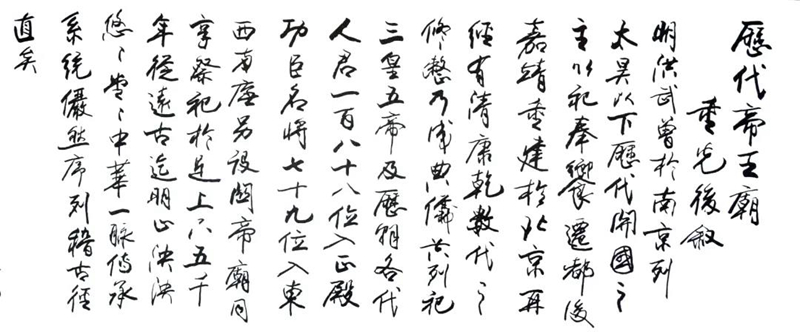 歷代帝王廟
重光後敘
明洪武曾於南京列
太昊以下歷代開國之
主以祀奉饗遷都後
嘉靖重建於北京再
經有清康乾數代之
修整乃成典儀共列祀
三皇五帝及歷朝各代
人君一百八十八位入正殿
功臣名將七十九位入東
西兩廡另設關帝廟同
享祭祀於是上下五千
年從遠古迄明止泱泱
悠〻堂〻中華一脈傳承
系統儼然序列稽古徑
直矣